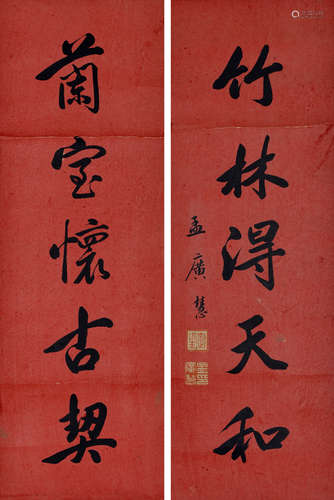 竹林得天和
蘭室懷古契
孟廣慧